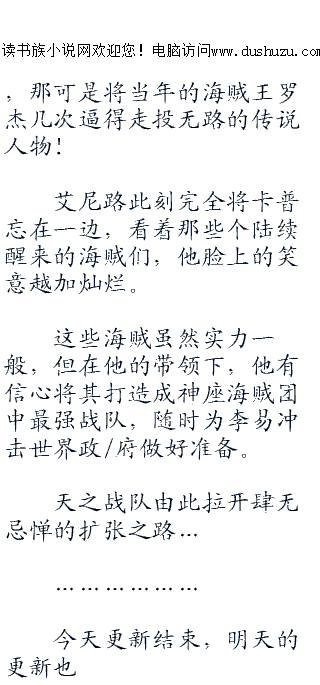 读书族小说网欢迎您！电脑访问www.dushuzu.com
，那可是将当年的海贼王罗
杰几次逼得走投无路的传说
人物！
艾尼路此刻完全将卡普
忘在一边，看着那些个陆续
醒来的海贼们，他脸上的笑
意越加灿烂。
这些海贼虽然实力一
般，但在他的带领下，他有
信心将其打造成神座海贼团
中最强战队，随时为李易冲
击世界政/府做好准备。
天之战队由此拉开肆无
忌惮的扩张之路…
………………
今天更新结束，明天的
更新也